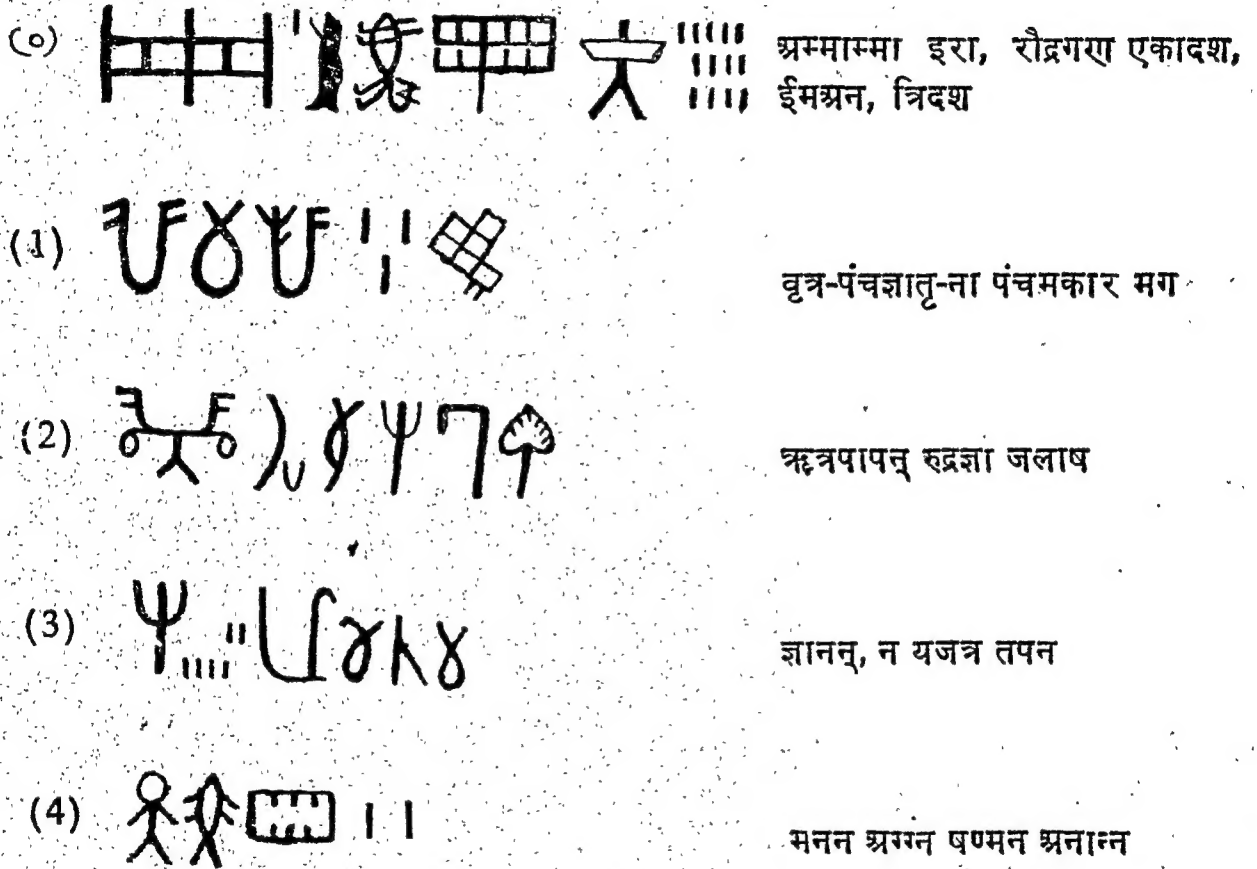 (०) अम्माम्मा इरा, रौद्रगण एकादश,
ईमअन, त्रिदश
(1) वृत्र-पंचज्ञातृ-ना पंचमकार मग
(2) ऋत्रपापन् रुद्रज्ञा जलाष
(3) ज्ञानन्, न यजत्र तपन
(4) मनन अग्ग्न षण्मन अनान्न